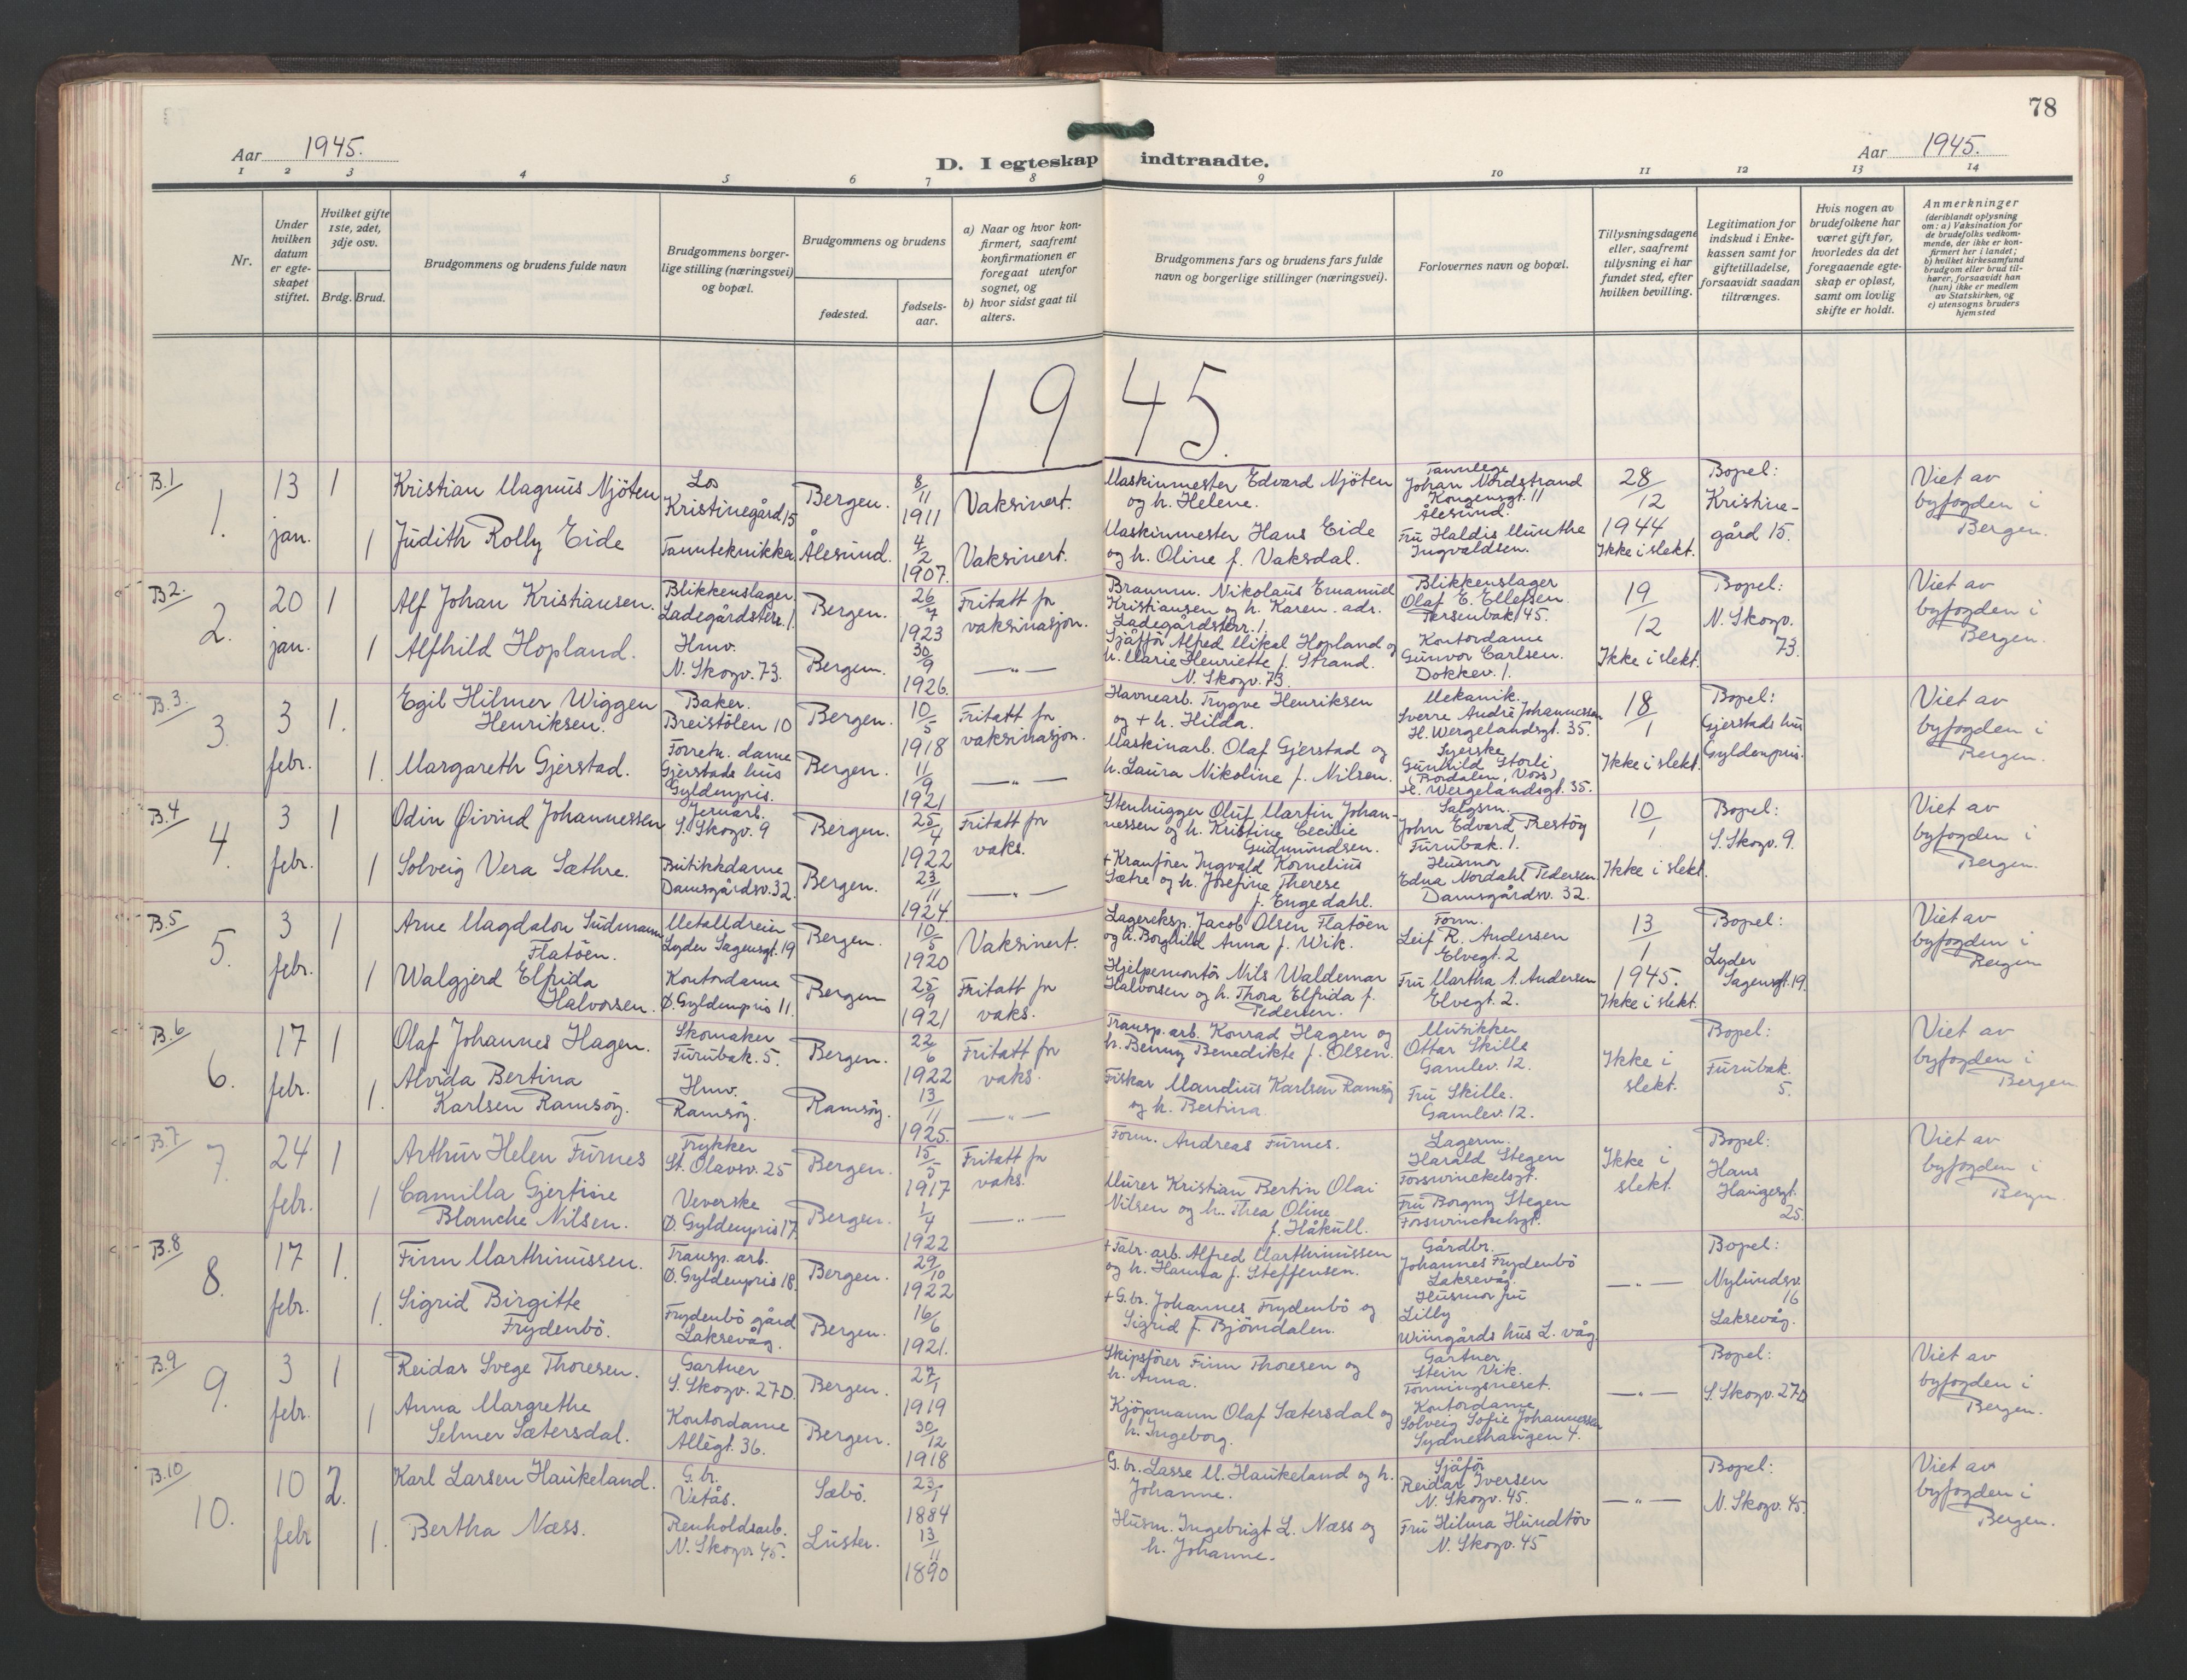 78
Aar 1945.
D. I egteskap indtraadte.
Aar 1945.
1 2 3 4 5 6 7 8 9 10 11 12 13 14
Nr.
Under hvilken datum er egteskapet stiftet.
Hvilket gifte 1ste, 2det, 3dje osv.
Brdg. Brud.
Brudgommens og brudens fulde navn
Brudgommens borgerlige stilling (næringsvei) og bopæl.
Brudgommens og brudens
fødested.
fødselsaar.
a) Naar og hvor konfirmert, saafremt konfirmationen er foregaat utenfor sognet, og
b) hvor sidst gaat til alters.
Brudgommens fars og brudens fars fulde navn og borgerlige stillinger (næringsvei).
Forlovernes navn og bopæl.
Tillysningsdagene eller, saafremt tillysning ei har fundet sted, efter hvilken bevilling.
Legitimation for indskud i Enkekassen samt for giftetilladelse, forsaavidt saadan tiltrænges.
Hvis nogen av brudefolkene har været gift før, hvorledes da det foregaaende egteskap er opløst, samt om lovlig skifte er holdt.
Anmerkninger
(deriblandt oplysning om: a) Vaksination for de brudefolks vedkommende, der ikke er konfirmert her i landet; b) hvilket kirkesamfund brudgom eller brud tilhører, forsaavidt han (hun) ikke er medlem av Statskirken, og c) utensogns bruders hjemsted
1945.
B.1
1.
13 jan.
1
Kristian Magnus Njöten
Los
Kristinegård 15
Bergen.
8/11 1911
Vaksinert.
Maskinmester Edvard Njöten
og h. Helene.
Tannlege
Johan Nordstrand
Kongensgt. 11
Ålesund.
28/12 1944
Ikke i slekt.
Bopel:
Kristinegård 15.
Viet av
byfogden i
Bergen.
1
Judith Rolly Eide
Tannteknikker
Ålesund.
4/2 1907.
Vaksinert.
Maskinmester Hans Eide
og h. Oline f. Vaksdal.
Fru Haldis Munthe
Ingvaldsen.
B2.
2.
20 jan.
1
Alf Johan Kristiansen.
Blikkenslager.
Ladegårdsterr. 1
Bergen.
26/7 1923
Fritatt for
vaksinasjon.
Brannm. Nikolaus Emanuel
Kristiansen og h. Karen. adr.
Ladegårdsterr. 1.
Blikkenslager
Olaf E. Ellefsen.
Persenbak. 45.
19/12
Ikke i slekt.
Bopel:
N. Skogv.
73.
Viet av
byfogden i
Bergen.
1
Alfhild Hopland.
Hmv.
N. Skogv. 73.
Bergen.
30/9 1926.
— " —
Sjåffør Alfred Mikal Hopland og
h. Marie Henriette f. Strand.
N. Skogv. 73.
Kontordame
Gunvor Carlsen.
Dokkev. 1.
B.3.
3.
3 febr.
1.
Egil Hilmer Wiggen
Henriksen.
Baker.
Breistölen 10
Bergen.
10/5 1918
Fritatt for
vaksinasjon.
Havnearb. Trygve Henriksen
og + h. Hilda.
Mekanik.
Sverre André Johannessen
H. Wergelandsgt. 35.
18/1
Ikke i slekt.
Bopel:
Gjerstads hus
Gyldenpris.
Viet av
byfogden i
Bergen.
1.
Margareth Gjerstad.
Forretn. dame
Gjerstads hus
Gyldenpris.
Bergen.
11/9 1921
— " —
Maskinarb. Olaf Gjerstad og
h. Laura Nikoline f. Nilsen.
Syerske
Gunhild Storli
(Bordalen, Voss)
H. Wergelandsgt. 35.
B.4
4.
3 febr.
1
Odin Øivind Johannessen
Jernarb.
S. Skogv. 9
Bergen.
25/4 1922
Fritatt for
vaks.
Stenhugger Oluf Martin Johannessen og h. Kristine Cecilie
Gudmundsen.
Salgsm.
John Edvard Prestöy
Furubak. 1.
10/1
Ikke i slekt.
Bopel:
S. Skogv. 9.
Viet av
byfogden i
Bergen.
1
Solveig Vera Sæthre.
Butikkdame
Damsgårdsv. 32.
Bergen.
23/11 1924.
— " —
+ Kranfører Ingvald Kornelius
Sætre og h. Josefine Therese
f. Engedahl.
Husmor
Edna Nordahl Pedersen
Damsgårdsv. 32.
B.5
5.
3 febr.
1
Arne Magdalon Sudmann
Flatöen.
Metalldreier
Lyder Sagensgt. 19
Bergen.
10/5 1920
Vaksinert.
Lagereksp. Jacob Olsen Flatöen
og h. Borghild Anna f. Wik.
Form.
Leif R. Andersen
Elvegt. 2
13/1 1945.
Ikke i slekt.
Bopel:
Lyder
Sagensgt. 19.
Viet av
byfogden i
Bergen
1
Walgjerd Elfrida
Halvorsen.
Kontordame
Ø. Gyldenpris 11.
Bergen
25/9 1921
Fritatt for
vaks.
Hjelpemontör Nils Waldemar
Halvorsen og h. Thora Elfrida f.
Pedersen.
Fru Martha A. Andersen
Elvegt. 2.
B.6
6.
17 febr.
1
Olaf Johannes Hagen.
Skomaker
Furubak. 5.
Bergen.
22/6 1922
Fritatt for
vaks.
Transp. arb. Konrad Hagen og
h. Benny Benedikte f. Olsen.
Musikker
Ottar Skille
Gamlev. 12.
Ikke i
slekt.
Bopel:
Furubak.
5.
Viet av
byfogden i
Bergen
1.
Alvida Bertina
Karlsen Ramsöy.
Hmv.
Ramsöy.
Ramsöy.
13/11 1925.
— " —
Fisker Mandius Karlsen Ramsöy
og h. Bertina.
Fru Skille.
Gamlev. 12.
B.7
7.
24 febr.
1
Arthur Helen Furnes
Trykker
St. Olavsv. 25
Bergen.
15/5 1917
Fritatt for
vaks.
Form. Andreas Furnes.
Lagerm.
Harald Stegen
Fosswinckelsgt.
Ikke i
slekt.
Bopel:
Hans
Haugesgt.
25.
Viet av
byfogden i
Bergen.
1
Camilla Gjertine
Blanche Nilsen.
Veverske
Ø. Gyldenpris 17.
Bergen.
1/4 1922
— " —
Murer Kristian Bertin Olai
Nilsen og h. Thea Oline
f. Håkull.
Fru Borgny Stegen
Fosswinckelsgt.
B.8
8.
17 febr.
1.
Finn Marthinussen.
Transp. arb.
Ø. Gyldenpris 18.
Bergen.
29/10 1922
+ Fabr. arb. Alfred Marthinussen
og h. Hanna f. Steffensen.
Gårdbr.
Johannes Frydenbö
Laksevåg.
— " —
Bopel:
Nylundsv.
16
Laksevåg.
1.
Sigrid Birgitte
Frydenbö.
Frydenbö gård
Laksevåg.
Bergen.
16/6 1921.
+ G.br. Johannes Frydenbö og
Sigrid f. Björndalen.
Husmor fru
Lilly
Wiingårds hus L. våg.
B.9
9.
3 febr.
1
Reidar Svege Thoresen.
Gartner
S. Skogv. 27D.
Bergen.
27/1 1919
Skipsfører Finn Thoresen og
h. Anna.
Gartner
Stein Vik.
Tonningsneset.
— " —
Bopel:
S. Skogv. 27D
Viet av
byfogden i
Bergen.
1
Anna Margrethe
Selmer Sætersdal.
Kontordame
Allégt. 36.
Bergen.
30/12 1918
Kjöpmann Olaf Sætersdal og
h. Ingeborg.
Kontordame
Solveig Sofie Johannessen
Sydneshaugen 4.
B.10
10.
10 febr
2.
Karl Larsen Haukeland.
G.br.
Vetås.
Sæbö.
23/1 1884
G.br. Lasse M. Haukeland og h.
Johanne.
Sjåför
Reidar Iversen
N. Skogv. 45.
— " —
Bopel:
N. Skogv. 45
Viet av
byfogden i
Bergen.
1.
Bertha Næss.
Renholdsarb.
N. Skogv 45.
Luster.
13/11 1890
Husm. Ingebrigt L. Næss og
h. Johanne.
Fru Hilma Hundtöv
N. Skogv. 45